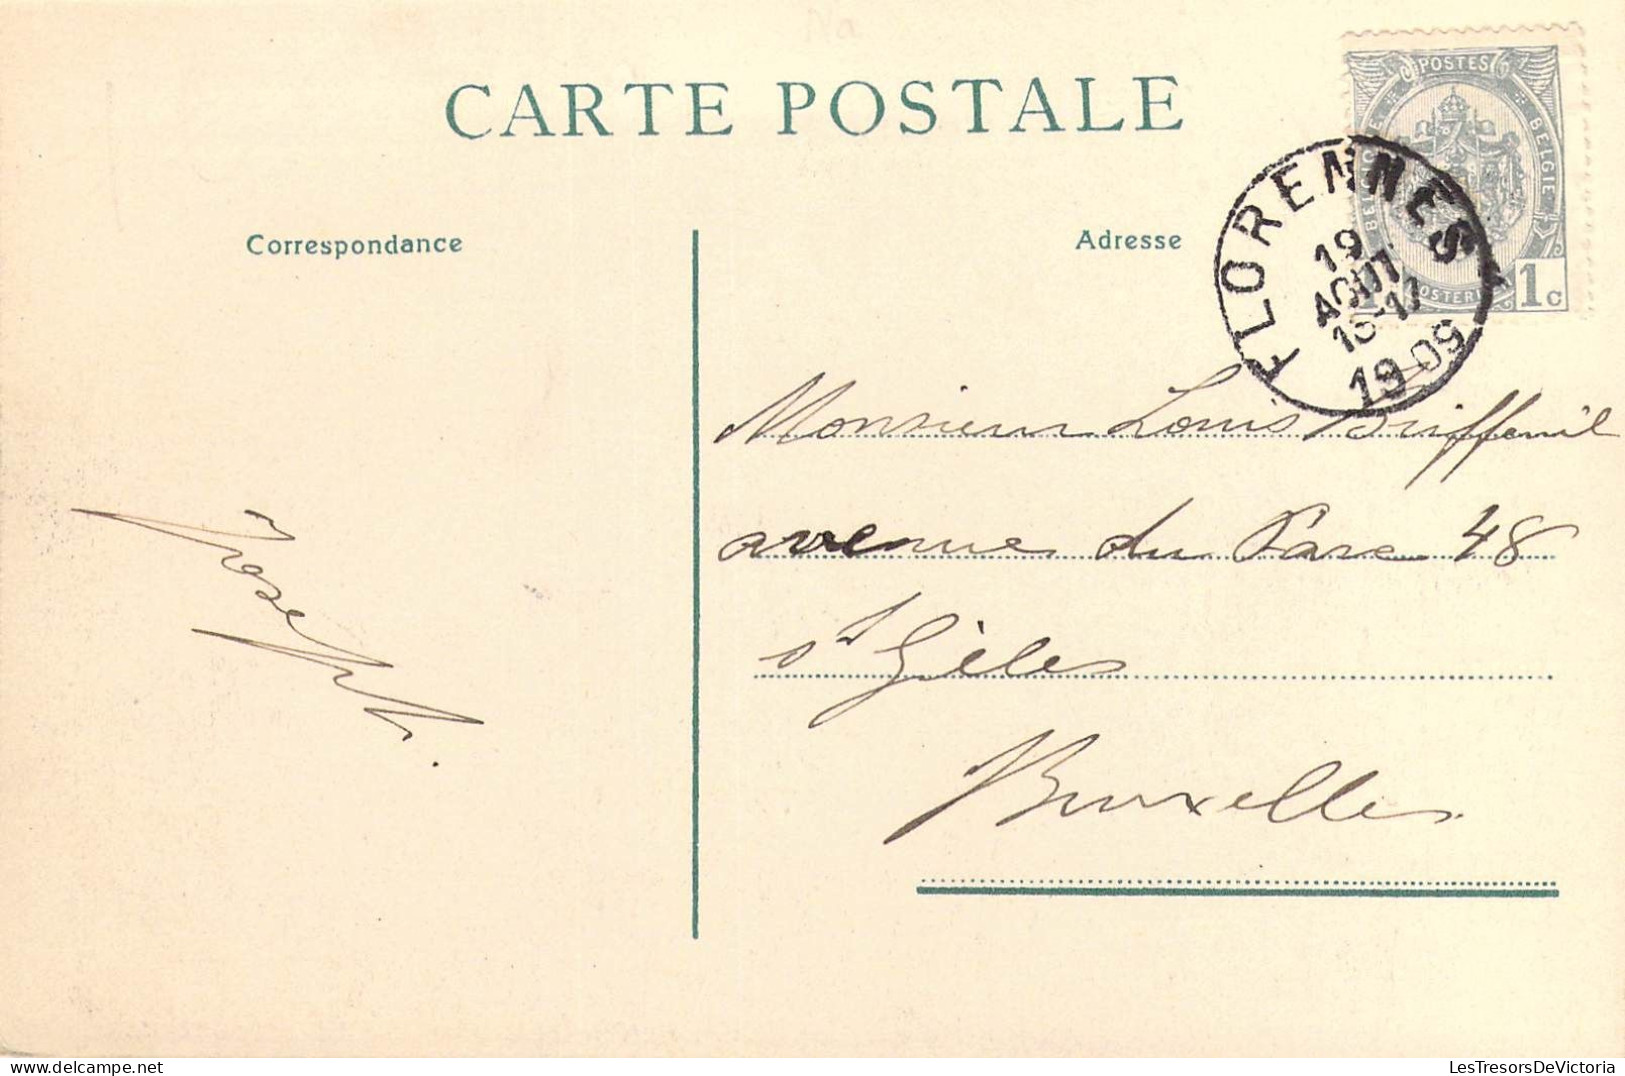 CARTE POSTALE
POSTES
BELGIQUE
BELGIE
POSTERIJEN
1c
FLORENNES
19
AOUT
16-17
1909
Correspondance
Adresse
Monsieur Louis
avenue du Parc 48
St Gèles
Bruxelles
Joseph.
LesTresorsDeVictoria